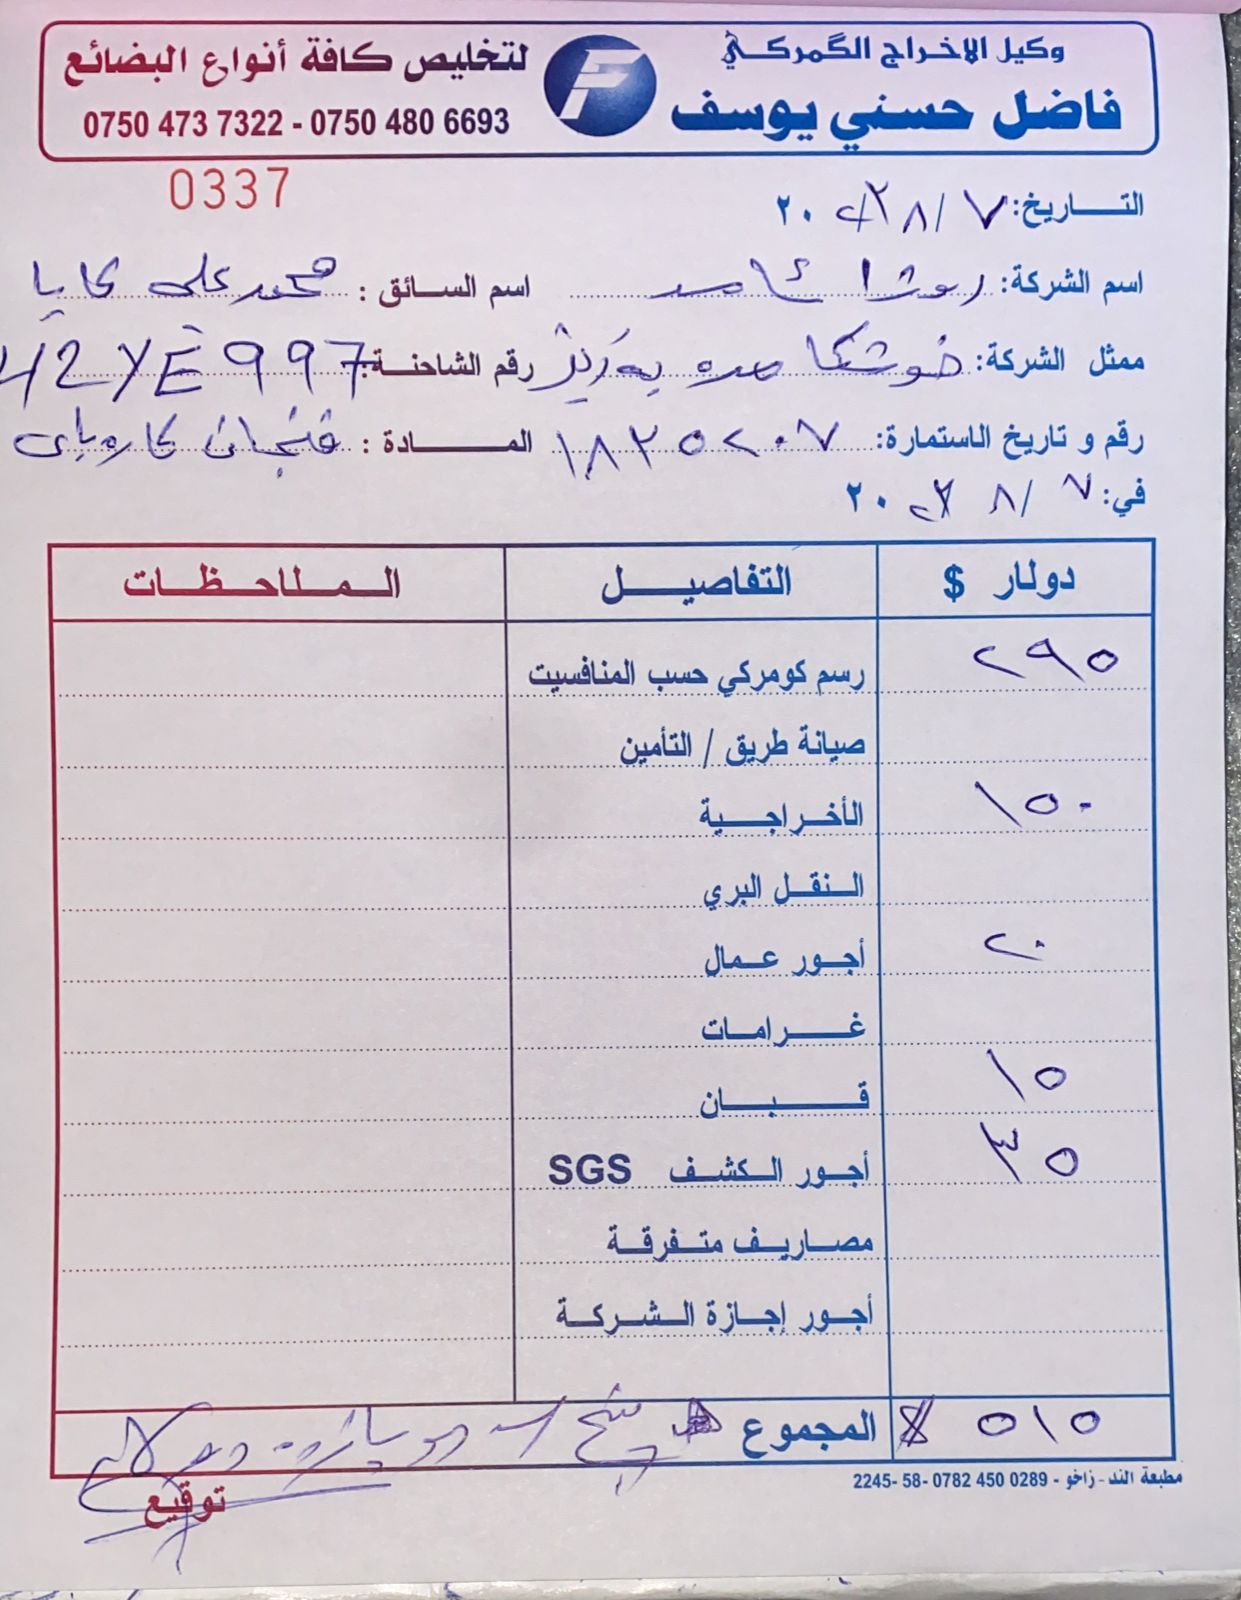 وكيل الاخراج الگمركي
فاضل حسني يوسف
لتخليص كافة أنواع البضائع
0750 473 7322 - 0750 480 6693
0337
التاريخ: ٧ / ٨ / ٢٠٢٢
اسم الشركة: اسم السائق: محمد علي كايا
ممثل الشركة: خوشكا رقم الشاحنة: 42YE997
رقم و تاريخ الاستمارة: المادة: فنجان كارەبای
في: ٧ / ٨ ٢٠٢٢
دولار $ التفاصيل الملاحظات
٢٩٥ رسم كومركي حسب المنافسيت
صيانة طريق / التأمين
١٥٠ الأخراجية
النقل البري
٢٠ أجور عمال
غرامات
١٥ قبان
٣٥ أجور الكشف SGS
مصاريف متفرقة
أجور إجازة الشركة
٥١٥ $ المجموع
توقيع
مطبعة الند - زاخو - 0289 450 0782 -58 -2245